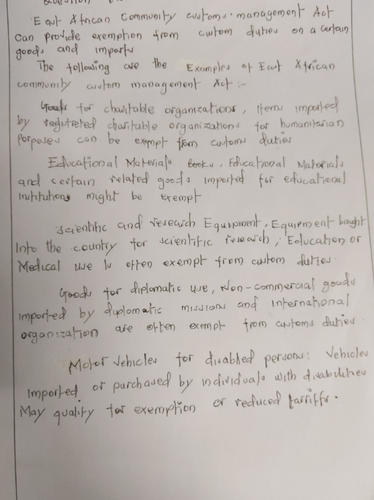 East African Community customs management Act
Can provide exemption from custom duties on a Certain
goods and imports
The following are the Examples of East African
community custom management Act :-
Goods for charitable organizations, Items imported
by registreted charitable organizations for humanitarian
Porposes can be exempt from customs duties
Educational Materials Books, Educational Materials
and certain related goods imported for educational
Institutions might be Exempt
Scientific and research Equipment, Equipment bought
Into the country for scientific research, Education or
Medical use is often exempt from custom duties.
Goods for diplomatic use, Non-commercial goods
imported by diplomatic missions and International
organization are often exempt from customs duties
Motor Vehicles for disabled persons: Vehicles
Imported or purchased by individuals with disabilities
May qualify for exemption or reduced tarrifs.